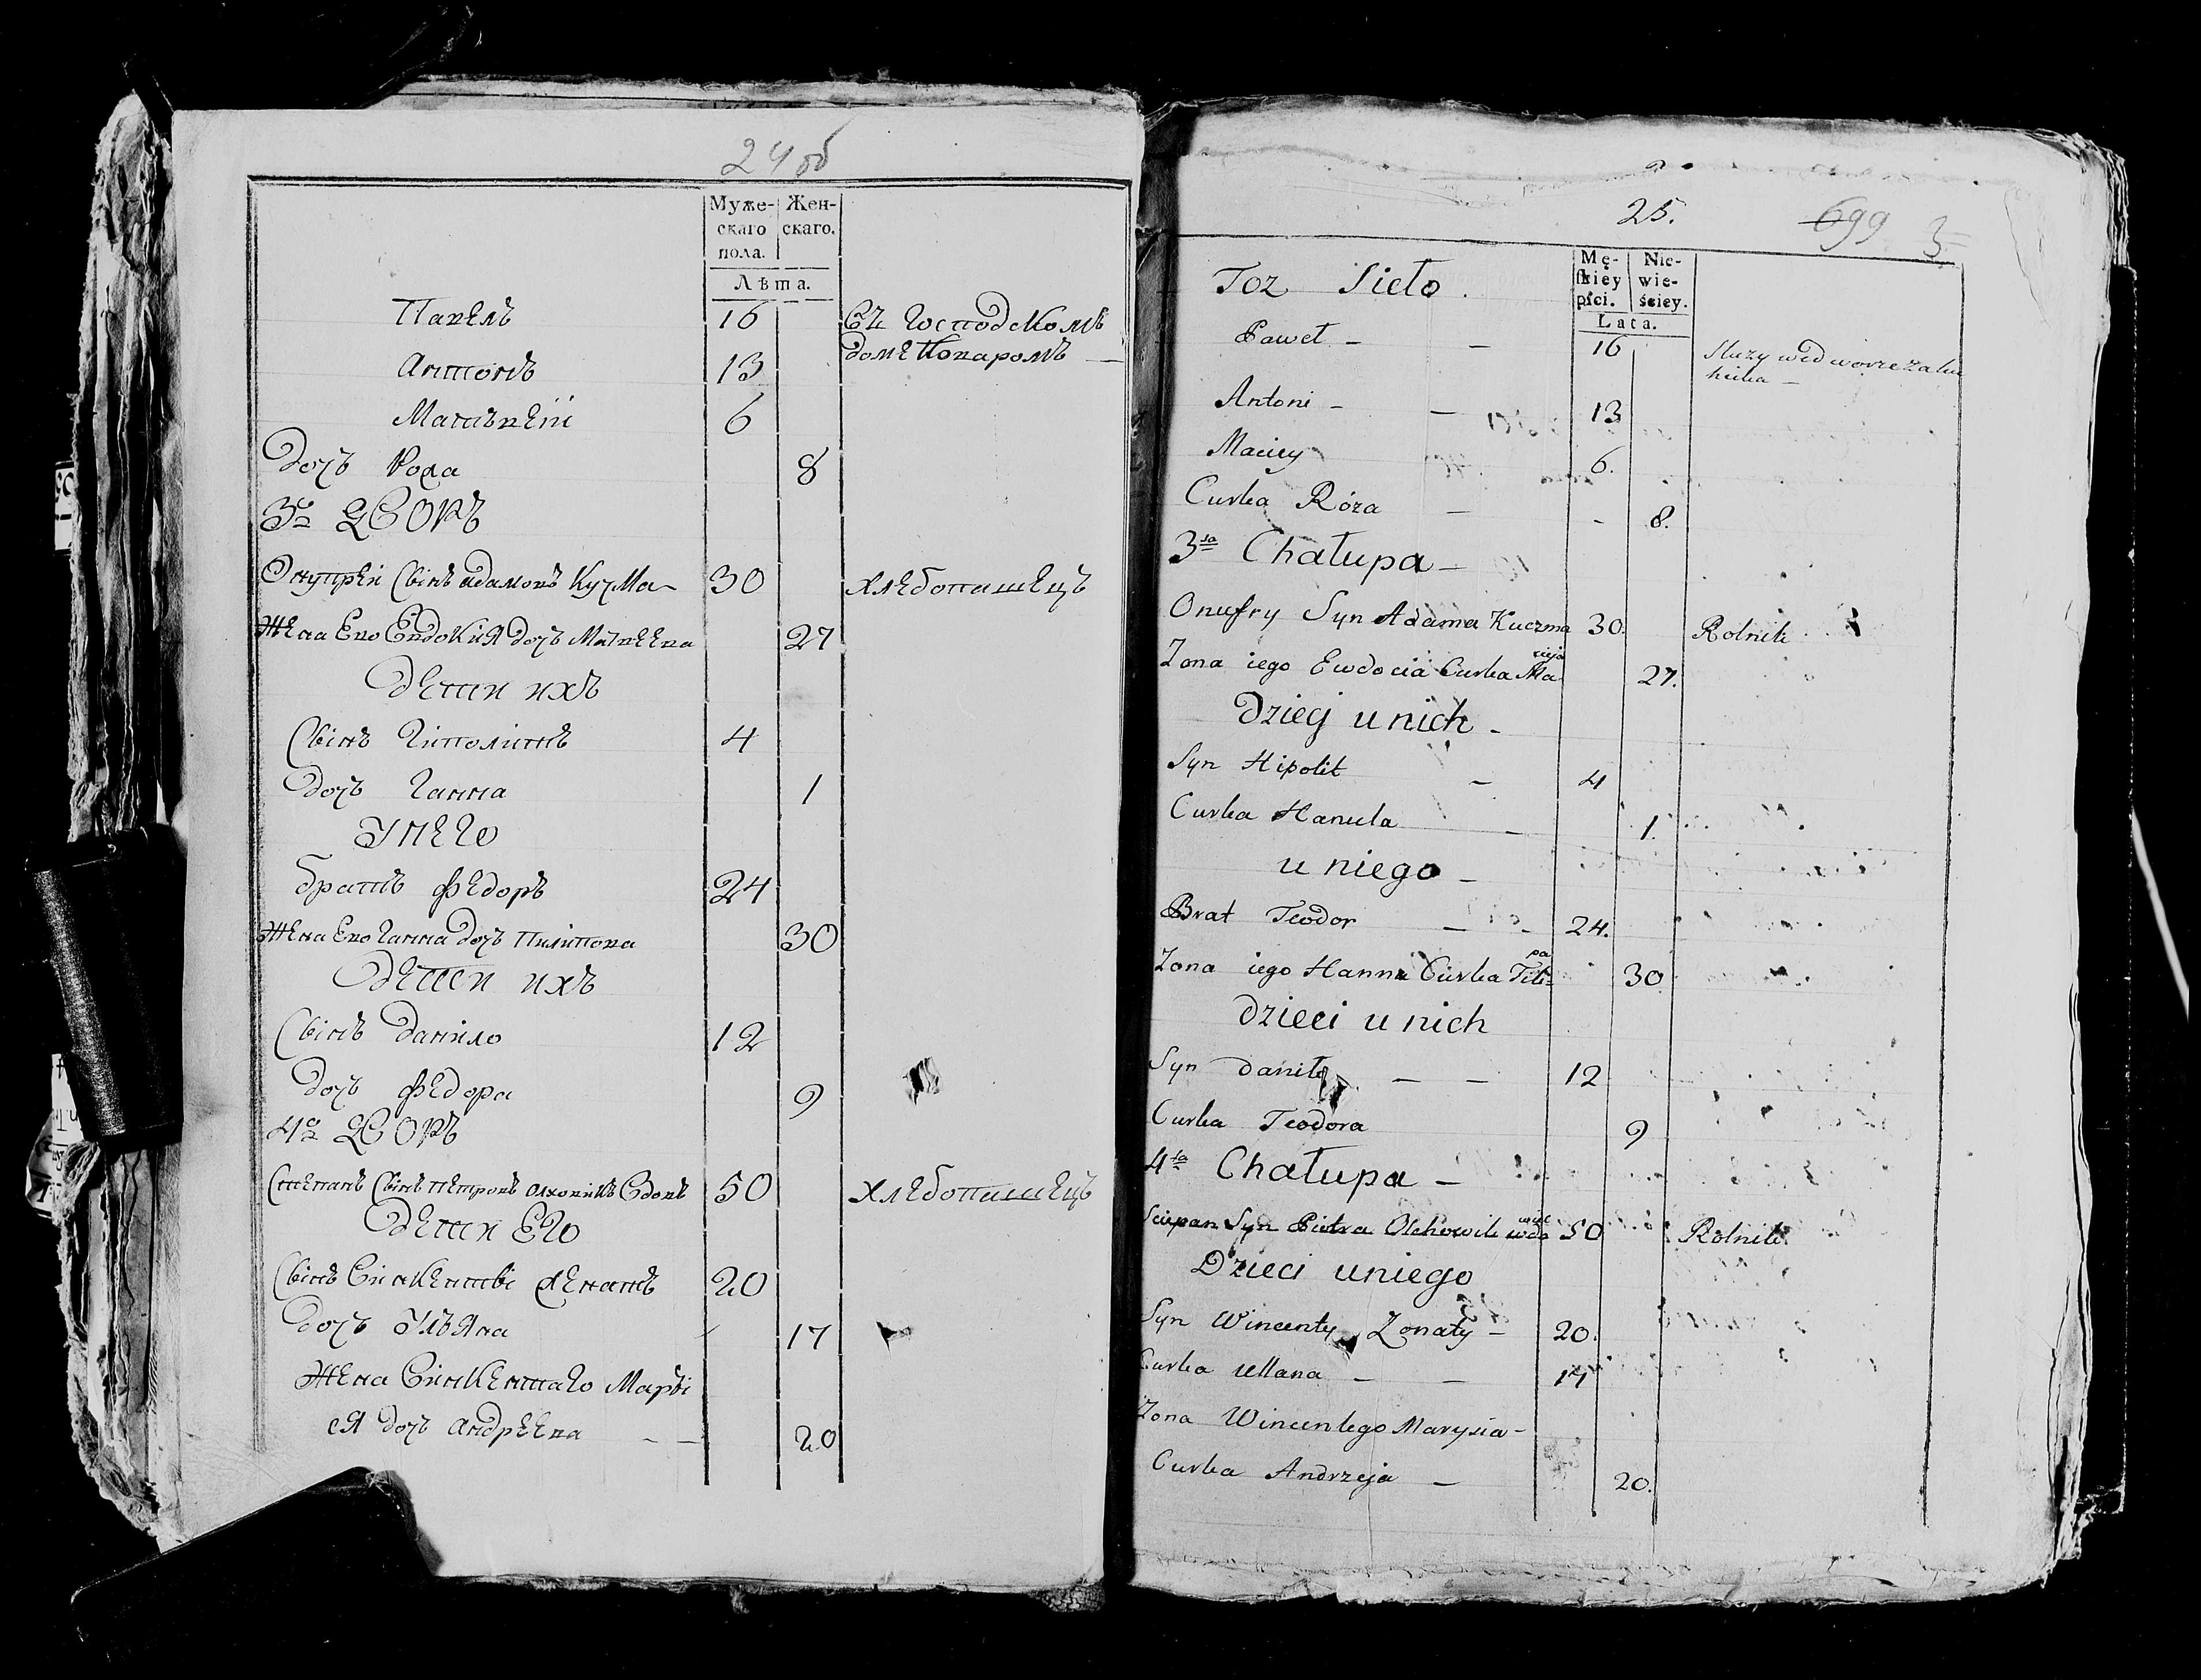 24 об
Муже-
скаго
пола.
Жен-
скаго.
Лѣта.
Павелъ 16 Въ господскомъ
доме поваромъ —
Антонъ 13
Матьвей 6
Дочь Рожа 8
3й ДВОРЪ
Онуфрей Сынъ Адамовъ Кучма 30 хлебопашецъ
Жена Ево Евдокия дочь Матвеева 27
Дети ихъ
Сынъ Гиполитъ 4
дочь Ганна 1
У него
братъ Федоръ 24
Жена Ево Ганна дочь Пилипова 30
Дети ихъ
Сынъ данило 12
дочь Федора 9
4й ДВОРЪ
Степанъ Сынъ Петровъ Олховикъ Вдовъ 50 хлебопашецъ
Дети Его
Сынъ Винкентьи женатъ 20
дочь Ульяна 17
Жена Винкентаго Мары
ся дочь Андреева — — 20
25. 699 3
Mę-
skiey
płci.
Nie-
wie-
ściey.
Lata.
Toż Sieło.
Paweł — — 16 Służy wedworze zaku
Antoni — — 13
Maciey 6.
Curka Róza — - 8.
3cia Chałupa —
Onufry Syn Adama Kuczma 30. Rolnik
Zona iego Ewdocia Curka Ma cieja 27.
Dzieci u nich —
Syn Hipolit — 4
Curka Hanula — 1.
u niego —
Brat Teodor — - 24.
Zona iego Hanna Curka Fili= pa 30
dzieci u nich
Syn daniło — — 12
Curka Teodora 9
4ta Chałupa —
Sciepan Syn Pietra Olchowik wdo wiec 50 Rolnik
Dzieci uniego
Syn Wincenty Zonaty — 20.
Curka Ullana — — 17
Zona Wincentego Marysia —
Curka Andrzeja — 20.